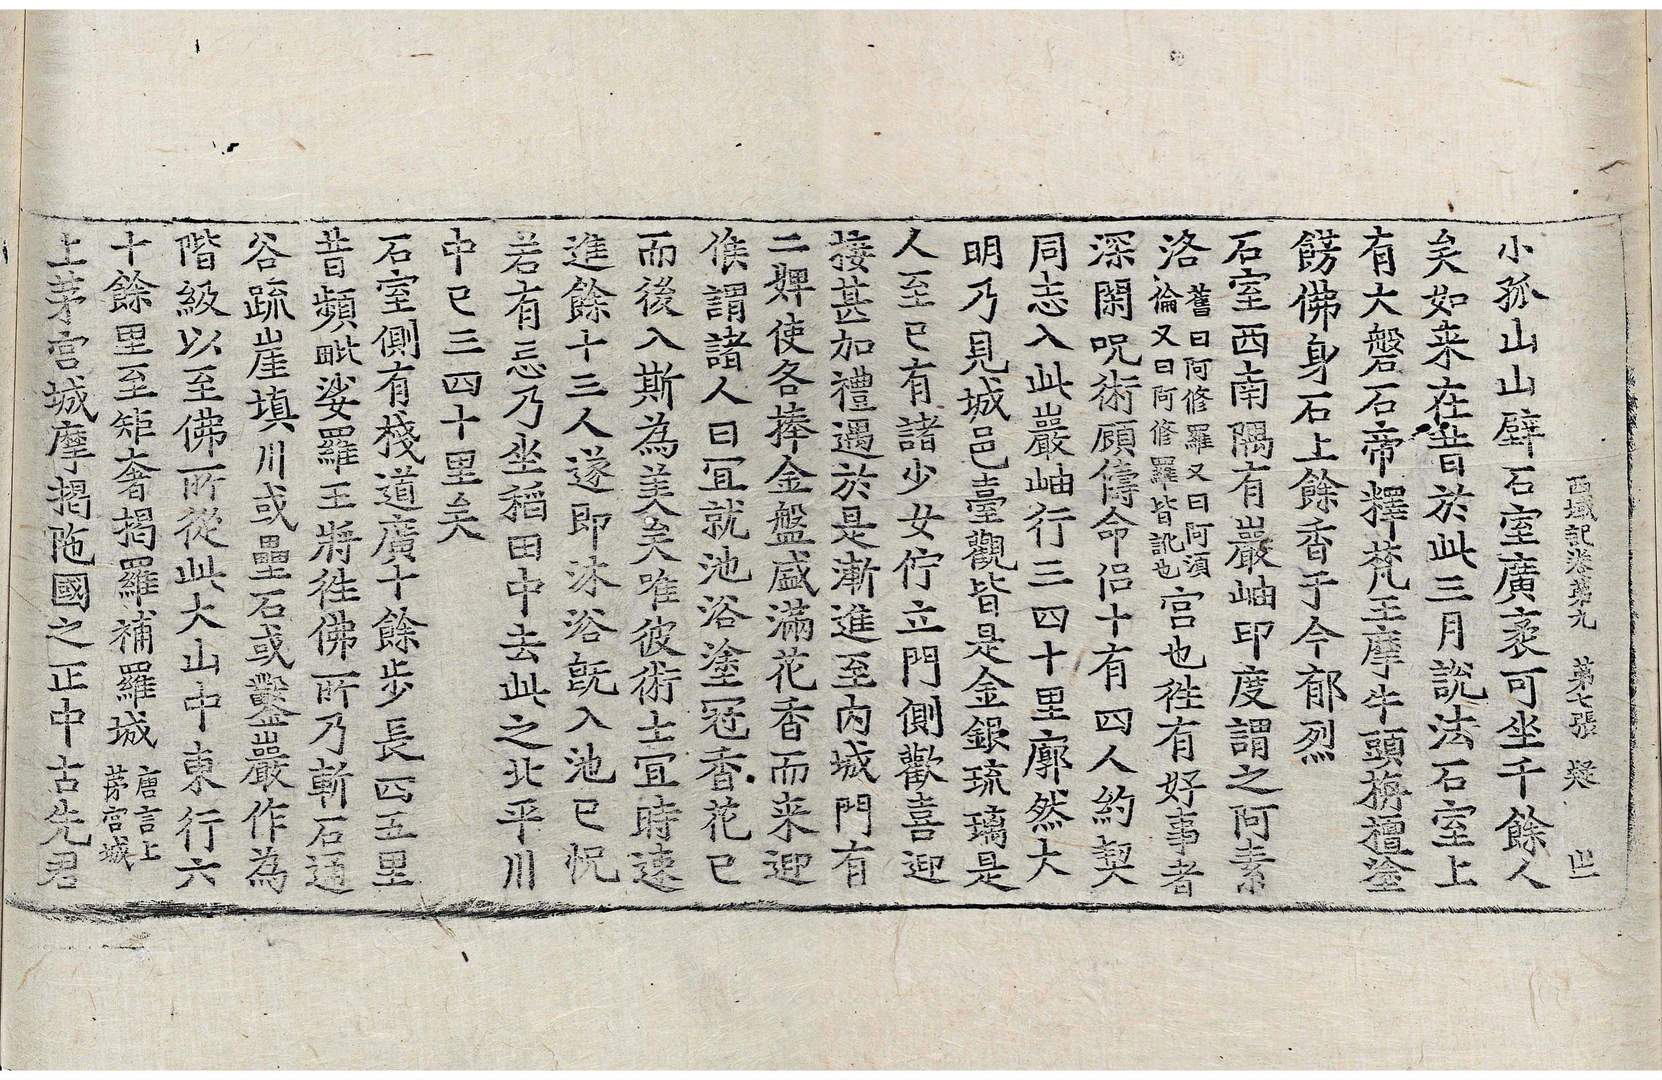 西域記卷苐九 苐七張 疑
小孤山山壁石室廣袤可坐千餘人
矣如来在昔於此三月說法石室上
有大磐石帝釋梵王摩牛頭栴檀塗
餝佛身石上餘香于今郁烈
石室西南隅有巖岫印度謂之阿素
洛舊曰阿修羅又曰阿須倫又曰阿修羅皆訛也宮也徃有好事者
深閑呪術顧儔命侣十有四人約契
同志入此巖岫行三四十里廓然大
明乃見城邑臺觀皆是金銀琉璃是
人至已有諸少女佇立門側歡喜迎
接甚加禮遇於是漸進至內城門有
二婢使各捧金盤盛滿花香而来迎
候謂諸人曰冝就池浴塗冠香花已
而後入斯為美矣唯彼術士冝時速
進餘十三人遂即沐浴旣入池已怳
若有忘乃坐稻田中去此之北平川
中已三四十里矣
石室側有棧道廣十餘步長四五里
昔頻毗娑羅王將徃佛所乃斬石通
谷疏崖填川或壘石或鑿巖作為
階級以至佛所從此大山中東行六
十餘里至矩奢揭羅補羅城唐言上茅宮城
上茅宮城摩揭陁國之正中古先君